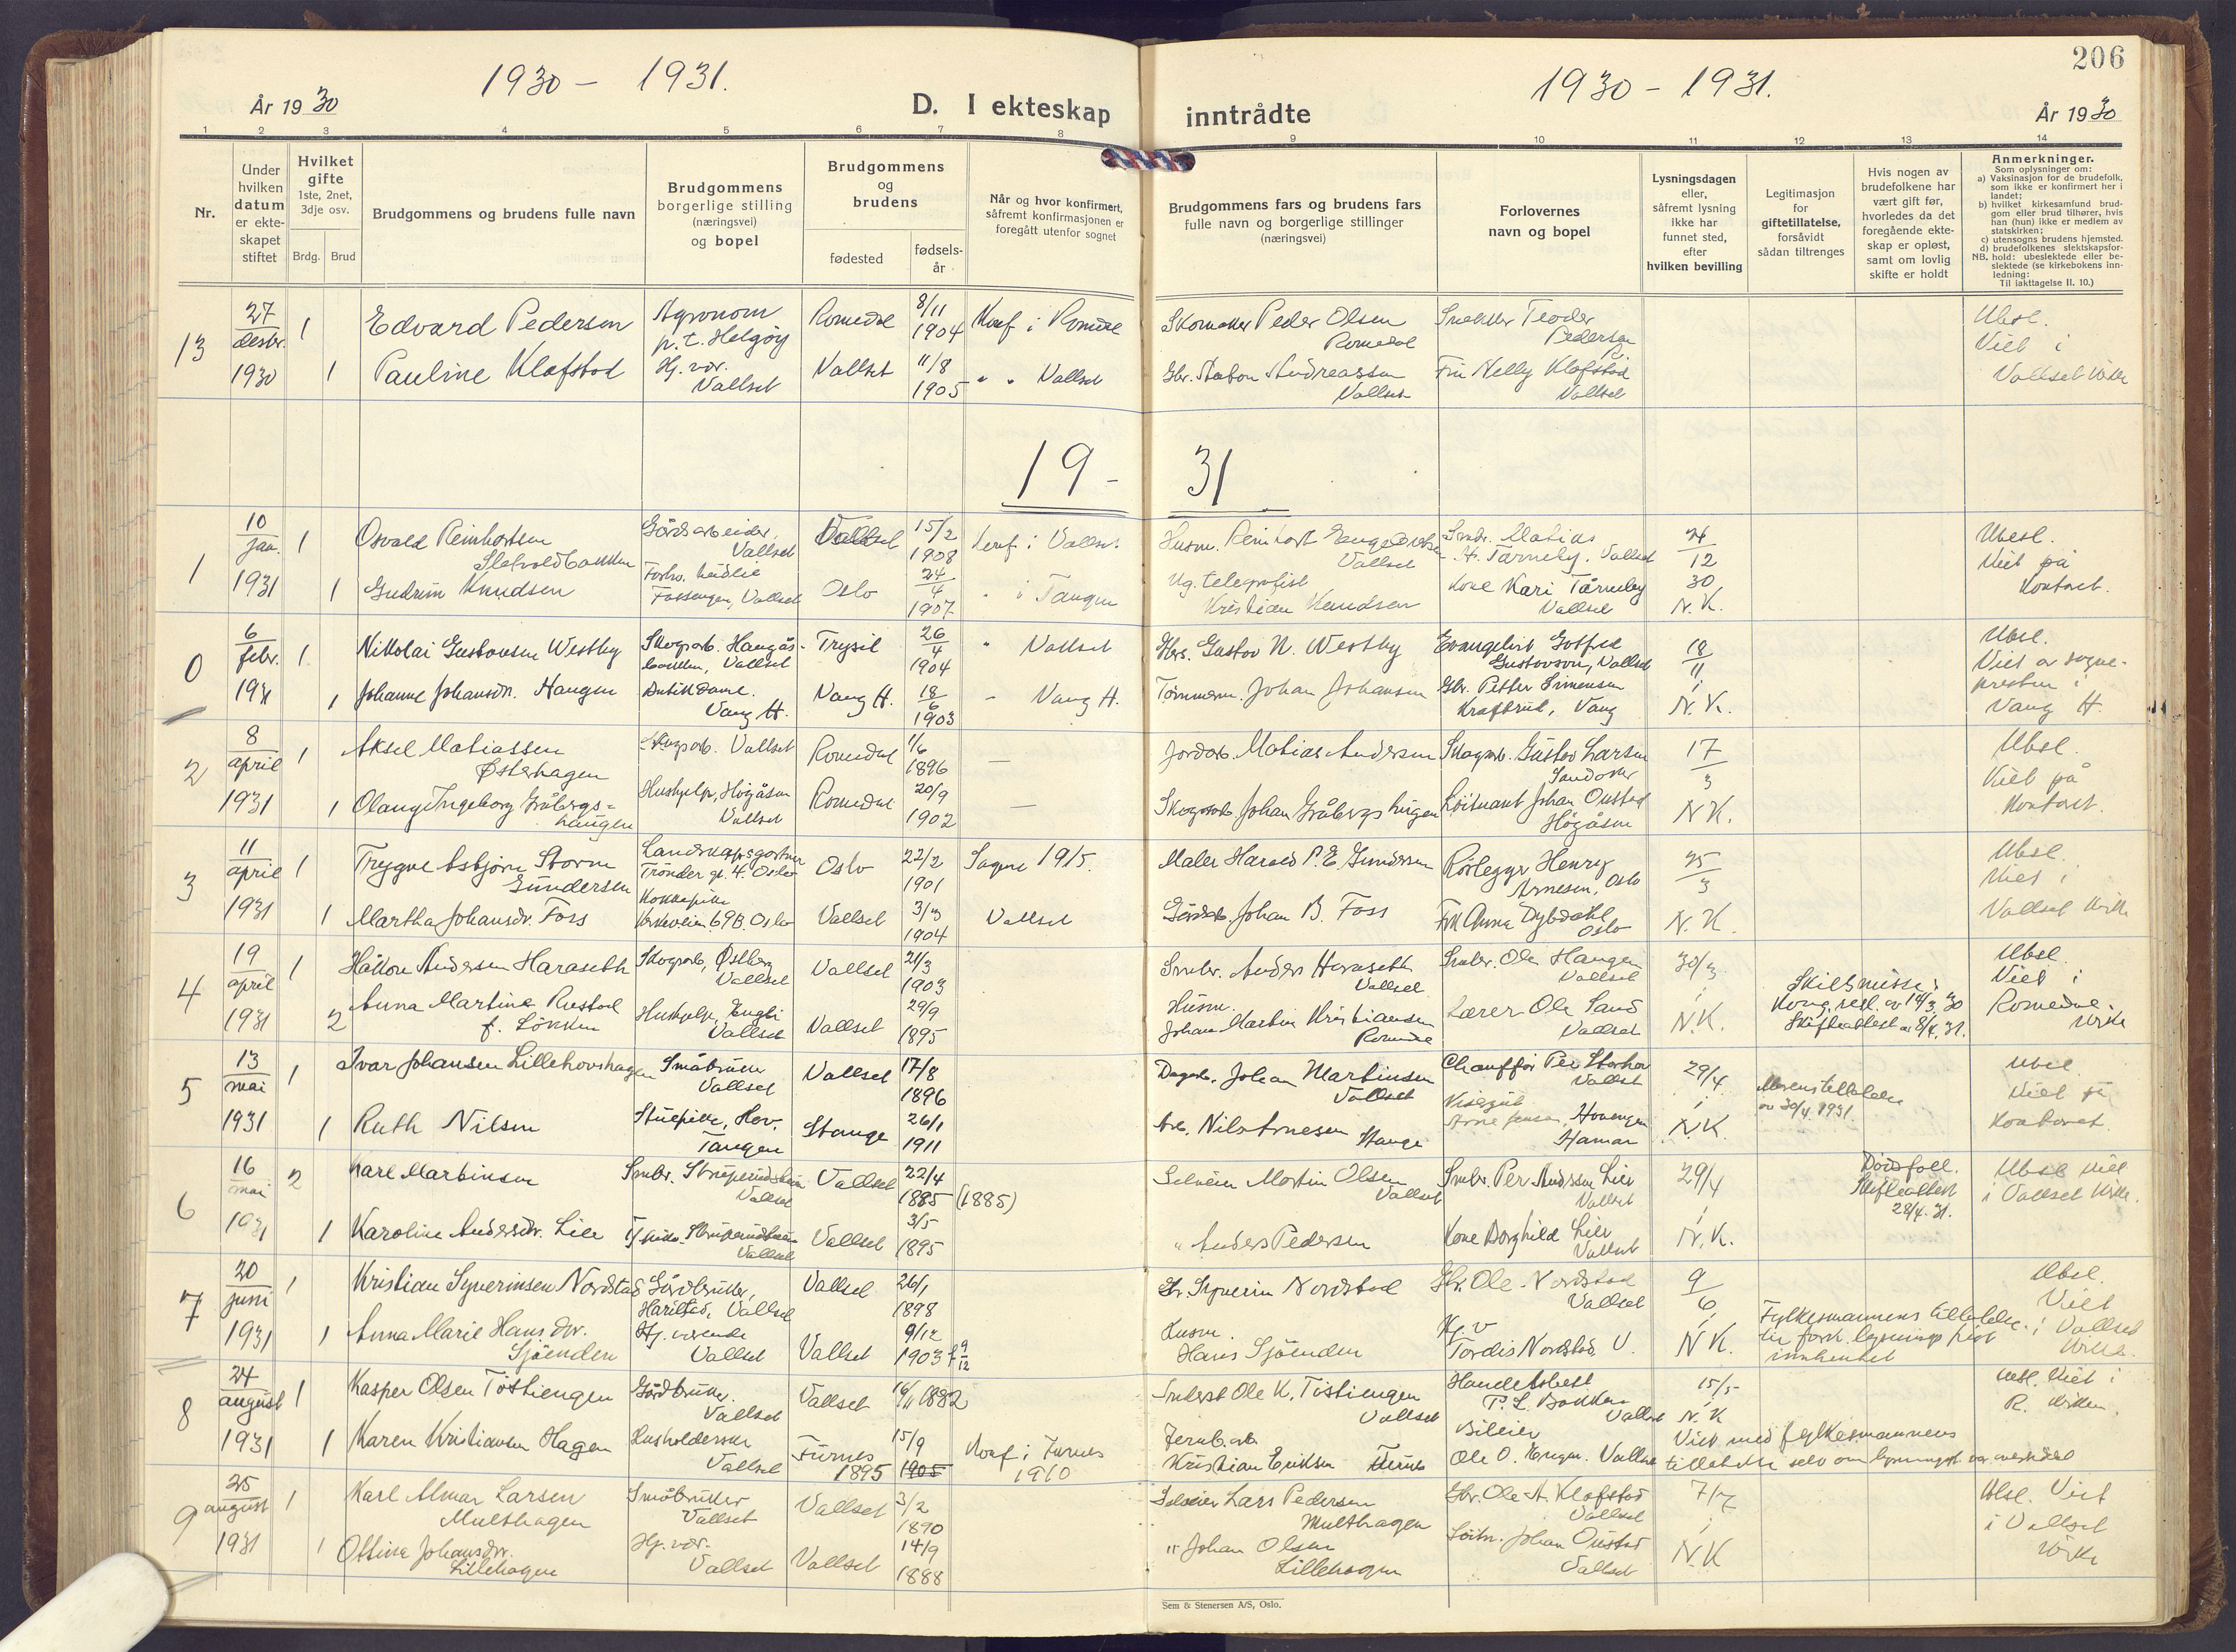 206
1930 - 1931.
1930 - 1931.
År 1930
D. I ekteskap
inntrådte
År 1930
1 2 3 4 5 6 7 8 9 10 11 12 13 14
Nr.
Under
hvilken
datum
er ekte-
skapet
stiftet
Hvilket
gifte
1ste, 2net,
3dje osv.
Brdg. Brud
Brudgommens og brudens fulle navn
Brudgommens
borgerlige stilling
(næringsvei)
og bopel
Brudgommens
og
brudens
fødested
fødsels-
år
Når og hvor konfirmert,
såfremt konfirmasjonen er
foregått utenfor sognet
Brudgommens fars og brudens fars
fulle navn og borgerlige stillinger
(næringsvei)
Forlovernes
navn og bopel
Lysningsdagen
eller,
såfremt lysning
ikke har
funnet sted,
efter
hvilken bevilling
Legitimasjon
for
giftetillatelse,
forsåvidt
sådan tiltrenges
Hvis nogen av
brudefolkene har
vært gift før,
hvorledes da det
foregående ekte-
skap er opløst,
samt om lovlig
skifte er holdt
Anmerkninger.
Som oplysninger om:
a) Vaksinasjon for de brudefolk,
som ikke er konfirmert her i
landet;
b) hvilket kirkesamfund brud-
gom eller brud tilhører, hvis
han (hun) ikke er medlem av
statskirken;
c) utensogns brudens hjemsted.
d) brudefolkenes slektskapsfor-
NB. hold: ubeslektede eller be-
slektede (se kirkebokens inn-
ledning:
Til iakttagelse II. 10.)
13
27
desbr.
1930
1
Edvard Pedersen
Agronom
p.t. Helgøy
Romedal
8/11
1904
Konf i Romedal
Skomaker Peder Olsen
Romedal
Snekker Teodor
Pedersen
R.
Ubsl.
Viet i
Vallset kirke
1
Pauline Klafstad
Hj. vær.
Vallset
Vallset
11/8
1905
" " Vallset
Gbr. Andreassen
Vallset
Nelly Klafstad
Vallset
19 - 31
1
10
jan.
1931
1
Osvald Reinhartsen
Gårdsarbeider,
Vallset
Vallset
15/2
1908
Konf i Vallset
Husm. Reinhart Engebretsen
Vallset
Smbr. Matias
H. Tårneby. Vallset
12
30
N. K.
Ubesl.
Viet på
Kontoret.
1
Gudrun Knudsen
Vallset
Oslo
24
4
1907
" i Tangen
Ug. telegrafist
Kristian Knudsen
Kone Kari Tårneby
Vallset
0
6
febr.
1931
1
Nikolai Gustavsen Westby
Skogsarb. Haugås-
bakken, Vallset
Trysil
26
4
1904
" Vallset
Gustav N. Westby
Evangelist Gotfred
Gustavson, Vallset
18
11
N. K.
Ubsl.
Viet av sogne-
presten i
Vang H.
1
Johanne Johansdr. Haugen
Butikkdame.
Vang H.
Vang H.
18
6
1903
- Vang H.
Tømmerm. Johan Johansen
Gbr. Petter Simensen
Vang
2
8
april
1931
1
Aksel Matiassen
Østerhagen
Skogsarb. Vallset
Romedal
1/6
1896
—
Jordarb. Matias Andersen
Skogsarb. Gustav Larsen
17
3
N K.
Ubsl.
Viet på
Kontoret.
1
Olaug Ingeborg Gråbergs-
haugen
Hushjelp, Høgåsen
Vallset
Romedal
20/9
1902
—
Skogsarb. Johan Gråbergshaugen
Løitnant Johan Oustad
Høgåsen
3
11
april
1931
1
Trygve Asbjørn Storm
Gundersen
Landskapsgartner
Trønder gt. 4. Oslo
Oslo
22/2
1901
Sagene 1915.
Maler Harald P. E. Gundersen
Rørlegger Henry
Arnesen, Oslo
25
3
N. K.
Ubsl.
Viet i
Vallset kirke
1
Martha Johansdr. Foss
Kokkepike
69B. Oslo
Vallset
3/3
1904
Vallset
Gårdsarb. Johan B. Foss
Frk Anna Dybdahl
Oslo
4
19
april
1931
1
Håkon Andersen Haraseth
Skogsarb, Østberg
Vallset
Vallset
21/3
1903
Smbr. Anders Haraseth
Vallset
Smbr. Ole Haugen
Vallset
30/3
N.K.
Skilsmisse:
Kong. resl. av 18/3. 30
Skifteattest av 8/4. 31.
Ubsl.
Viet i
Romedal
kirke
2
Anna Martine Rustad
f. Løkken
Hushjelp, Engli
Vallset
Vallset
29/9
1895
Husm.
Johan Martin Kristiansen
Romedal
Lærer Ole Sand
Vallset
5
13
mai
1931
1
Ivar Johansen Lillehovshagen
Småbruker
Vallset
Vallset
17/8
1896
Dagarb. Johan Martinsen
Vallset
Chauffør Per Storhov
Vallset
29/4
N.K.
av 30/4. 1931.
Ubsl.
Viet på
Kontoret.
1
Ruth Nilsen
Stuepike, Hov.
Tangen
Stange
26/1
1911
Arb. Nils Arnesen
Stange
Visergut
Arne Jensen, Hovengen
Hamar
6
16
mai
1931
2
Karl Martinsen
Smbr.
Vallset
Vallset
22/4
1885 (1885)
Selveier Martin Olsen
Vallset
Smbr. Per Andersen Lier
Vallset
29/4
N. K.
Dødsfall.
Skifteattest
28/4. 31.
Ubsl. Viet
i Vallset kirke.
1
Karoline Andersdr. Lier
Vallset
Vallset
3/5
1895
" Anders Pedersen
Kone Borghild Lier
Vallset
7
20
juni
1931
1
Kristian Syverinsen Nordstad
Gårdbruker,
Harildstad, Vallset
Vallset
26/1
1898
Gbr. Syverin Nordstad
Gbr. Ole Nordstad
Vallset
9
6
N K.
Fylkesmannens tillatelse
til fork. lysningsfrist
innhentet
Ubsl.
Viet
i Vallset
kirke.
1
Anna Marie Hansdr.
Sjøenden
Hj. værende
Vallset
Vallset
9/12
1903 f 9/12
Husm.
Hans Sjøenden
Hj. v
Tordis Nordstad, V.
8
24
august
1931
1
Kasper Olsen Tøstiengen
Gårdbruker.
Vallset
Vallset
16/11 1882
Ole K. Tøstiengen
Vallset
Handelsbest.
P. L. Bakken
Vallset
15/5
N. K
Ubsl. Viet i
R. kirken.
1
Karen Kristiansen Hagen
Husholderske
Vallset
Furnes
1895
15/9
1905
Konf i Furnes
1910
Jernb. arb.
Kristian Eriksen Furnes
Bileier
Ole O. Vallset
Viet med fylkesmannens
tillatelse selv om lysningst. var
9
25
august
1931
1
Karl Almar Larsen
Multhagen
Småbruker
Vallset
Vallset
3/2
1890
Selveier Lars Pedersen
Multhagen
Gbr. Ole A. Klafstad
Vallset
7/7
N.K
Ubsl. Viet
i Vallset
kirke
1
Ottine Johansdr.
Lillehagen
Hj. vær.
Vallset
Vallset
14/9
1888
" Johan Olsen
Lillehagen
Løitn. Johan Oustad
Vallset
Sem & Stenersen A/S, Oslo.